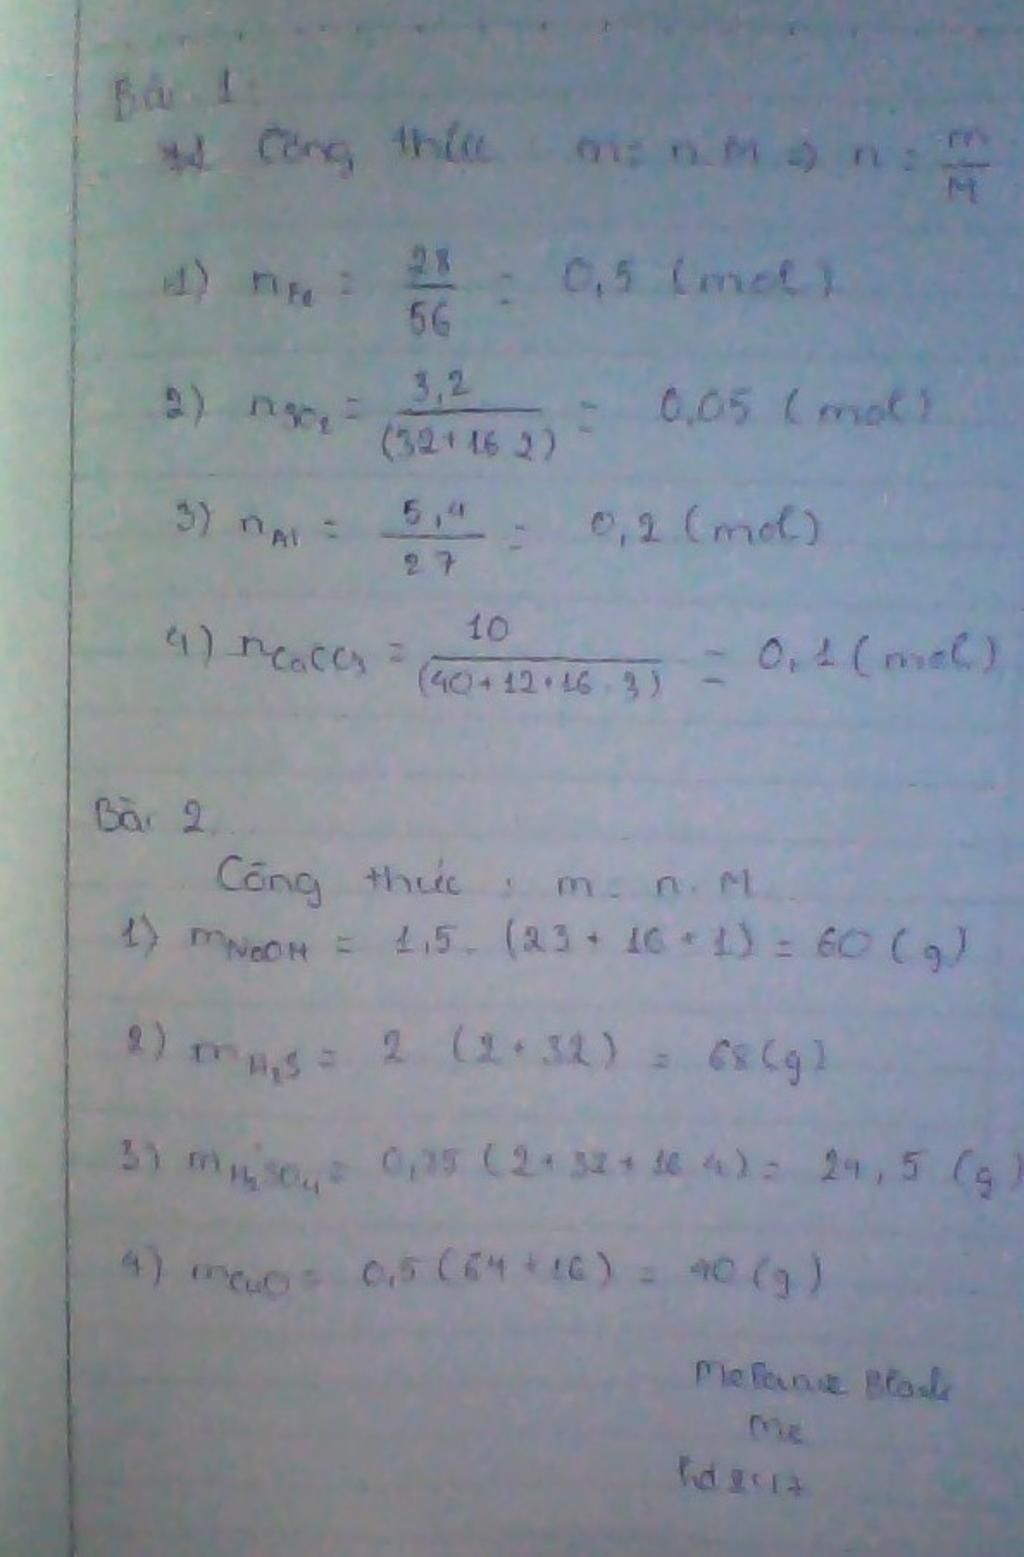 Bài 1:
Công thức : m = n.M => n = m/M
1) nFe = 28/56 = 0,5 (mol)
2) nSO2 = 3,2/(32+16.2) = 0,05 (mol)
3) nAl = 5,4/27 = 0,2 (mol)
4) nCaCO3 = 10/(40+12+16.3) = 0,1 (mol)
Bài 2
Công thức : m = n.M
1) mNaOH = 1,5.(23+16+1) = 60 (g)
2) mH2S = 2 (2+32) = 68 (g)
3) mH2SO4 = 0,25 (2+32+16.4) = 24,5 (g)
4) mCuO = 0,5 (64+16) = 40 (g)
Me